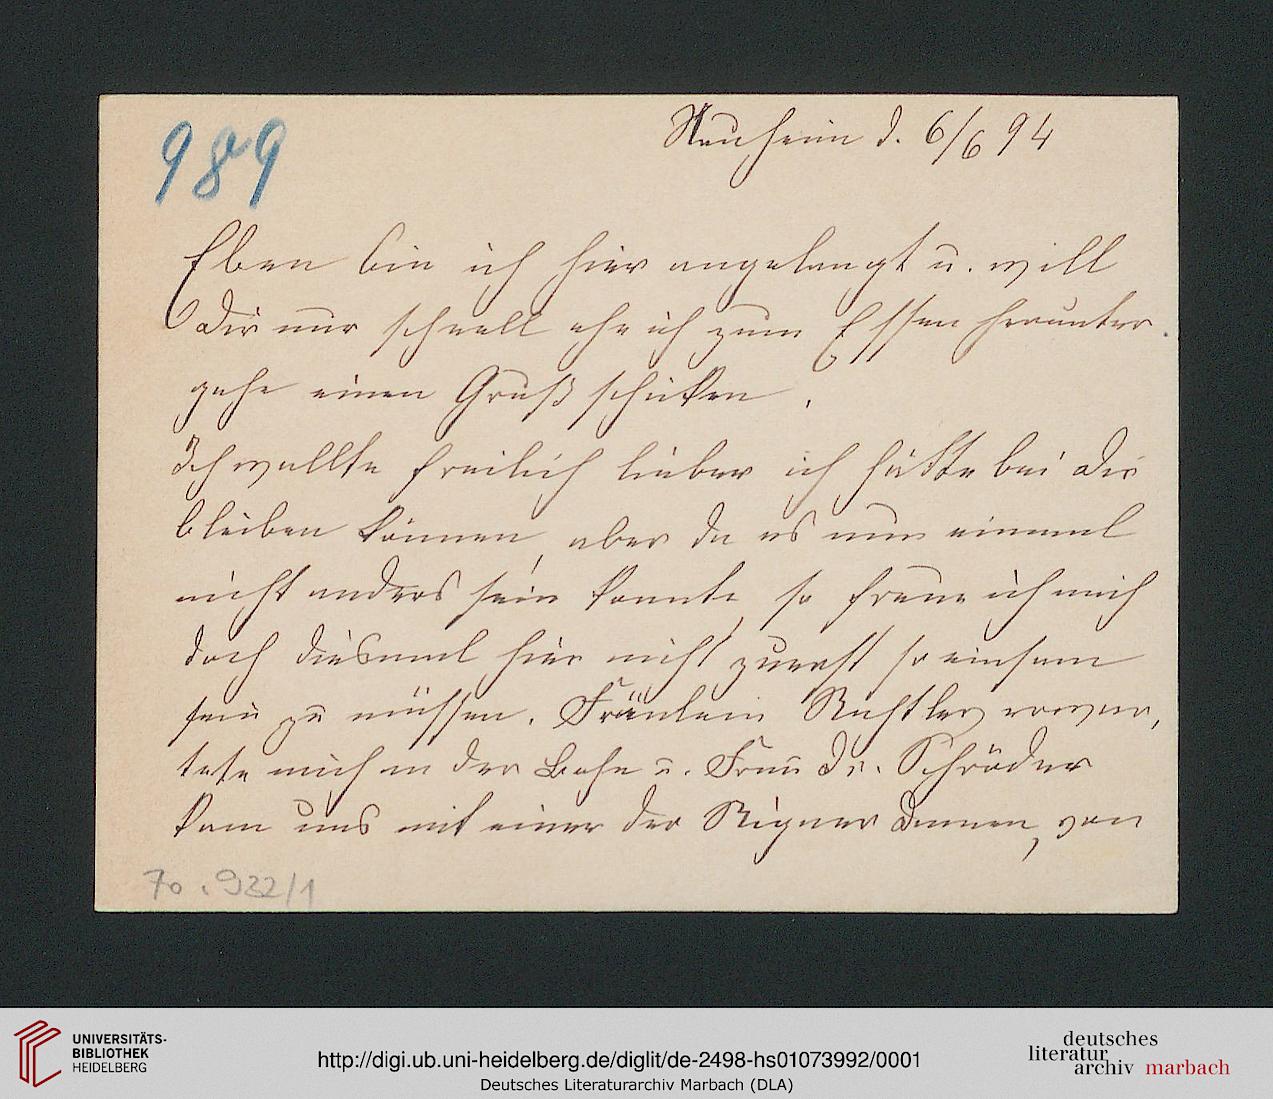 989
Nauheim d. 6/6 94
Eben bin ich hier angelangt u. will
Dir nur schnell ehe ich zum Essen herunter
gehe einen Gruß schicken.
Ich wollte freilich lieber ich hätte bei Dir
bleiben können, aber da es nun einmal
nicht anders sein konnte, so freue ich mich
doch diesmal hier nicht zuerst so einsam
sein zu müssen. Fräulein erwar,
tete mich an der Bahn u. Frau Dr. Schröder
kam uns mit einer der Rigaer Damen, von
70.932/1
UNIVERSITÄTS-
BIBLIOTHEK
HEIDELBERG
http://digi.ub.uni-heidelberg.de/diglit/de-2498-hs01073992/0001
Deutsches Literaturarchiv Marbach (DLA)
deutsches
literatur
archiv marbach